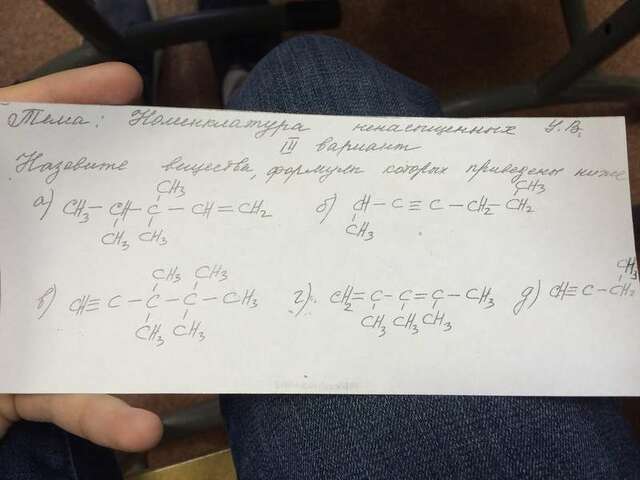 Тема: Номенклатура ненасыщенных У.В.
III вариант
Назовите вещества, формулы которых приведены ниже
CH3
а) CH3 – CH – C – CH = CH2
CH3 CH3
CH3
б) CH – C ≡ C – CH2 – CH2
CH3
CH3 CH3
в) CH ≡ C – C – C – CH3
CH3 CH3
г) CH2 = C – C = C – CH3
CH3 CH3 CH3
CH3
д) CH ≡ C – CH2